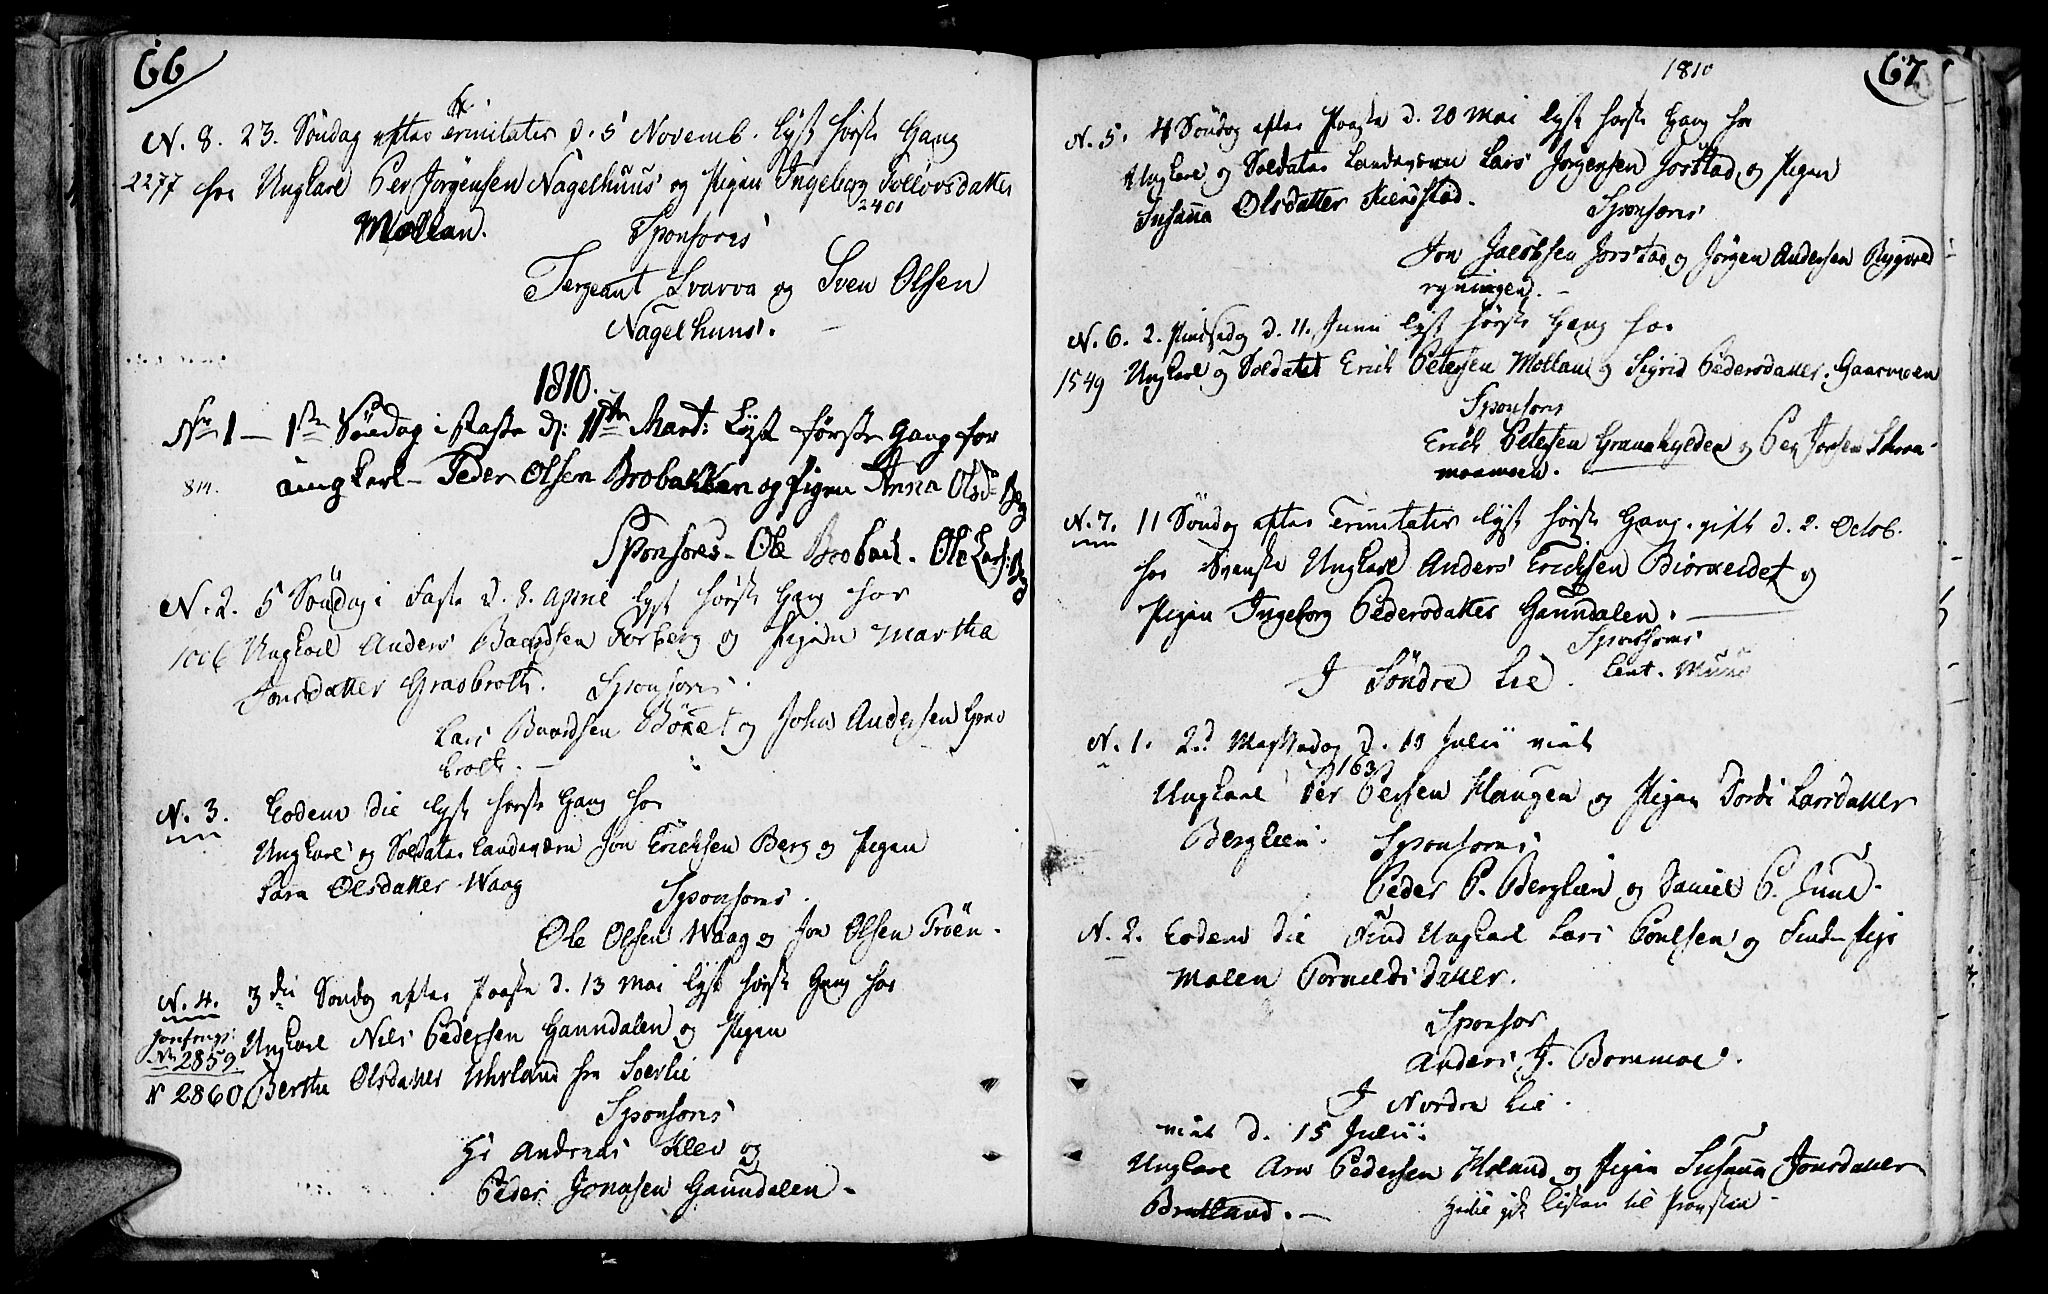 66
N. 8. 23. Söndag efter Trinitatis d. 5 Novemb. lyst förste Gang
2277 for Ungkarl Per Jörgensen Nagelhuus og Pigen Ingeborg Tollovsdatter
2401
Mollan. Sponsores
Sergeant Svarva og Sven Olsen
Nagelhuus.
1810.
No 1 — 1ste Söndag i Faste d: 11te Mart: Lyst förste Gang for
814. ungkarl – Peder Olsen Brobakken og Pigen Anna Olsdr Berg
Sponsores – Ole Brobach. Ole Lars: Berg
N. 2. 5 Söndag i Faste d. 8. April lyst förste Gang for
1006 Ungkarl Anders Baardsen Forberg og Pigen Martha
Jonsdatter Grasbrott. Sponsores
Lars Baardsen Böxet og John Andersen Gras
brott. —
N. 3. Eodem die lyst förste Gang for
Ungkarl og Soldater Landeværn Jon Ericksen Berg og Pigen
Sara Olsdatter Waag
Sponsores.
Ole Olsen Waag og Jon Olsen Tröen.
N. 4. 3die Söndag efter Paaske d. 13 Mai lyst förste Gang for
Ungkarl Nils Pedersen Ganndalen og Pigen
No 2859
N 2860 Berthe Olsdatter Uhrland fra Soerlie
Sponsores
Hr Andreas Klev og
Peder Jonasen Ganndalen.
1810
67
N. 5. 4 Söndag efter Paaske d. 20 Mai lyst förste Gang for
Ungkarl og Soldater Landeværn Lars Jörgensen Jorstad og Pigen
Susanna Olsdatter Kierestad. Sponsores
Jon Jacobsen Jorstad og Jörgen Andersen Bygved
rydningen. —
N. 6. 2. Pindsedag d. 11. Junii lyst förste Gang for
1549 Ungkarl og Soldater Erick Petersen Mollan og Sigrid Pedersdatter Gaasmoen
Sponsores
Erick Petersen Granahylden og Per Jonsen Skra-
maamoen.
N. 7. 11 Söndag efter Trinitatis lyst förste Gang. gift d. 2. Octob.
for Svenske Ungkarl Anders Ericksen Biörneidet og
Pigen Ingeborg Pedersdatter Ganndalen. —
Sponsores
I Söndre Lie. Leut. Muus
N. 1. 2d Messedag d. 13 Julii viet
163
Ungkarl Per Persen Haugen og Pigen Dordi Larsdatter
Berglien. Sponsores
Peder P. Berglien og Daniel P. Juul.
N. 2. Eodem die Find Ungkarl Lars Poulsen og Finde Pige
Malen Torkildsdatter.
Sponsor
Anders J. Bommoe.
I Nordre Lie.
viet d. 15 Julii:
Ungkarl Arn Pedersen Holand og Pigen Susanna Jonsdatter
Bratland. —
Listen til Provsten